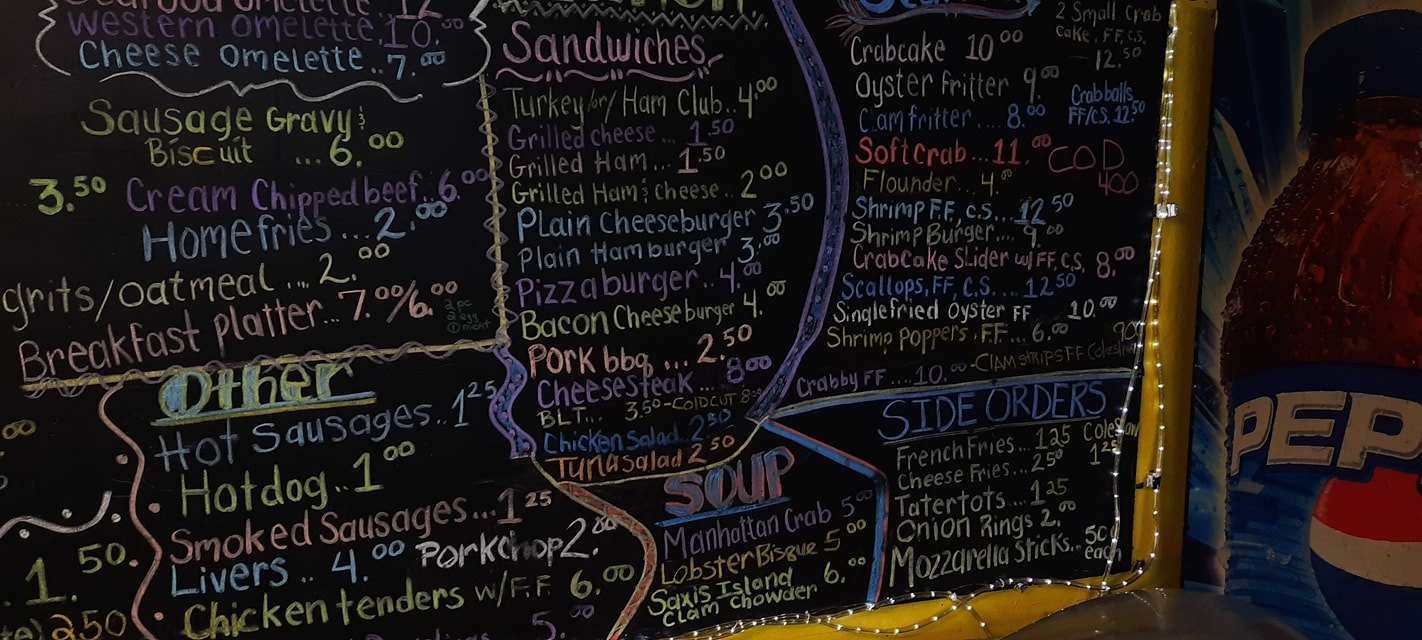 Seafood Omelette 12
Western Omelette 10.00
Cheese Omelette..7.00
Sausage Gravy &
Biscuit ...6.00
3.50 Cream Chippedbeef..6.00
Homefries...2.00
grits/oatmeal...2.00
Breakfast platter...7.00/6.00
2 pc
2 egg
1 meat
Other
Hot Sausages..1 25
Hotdog..1 00
Smoked Sausages...1 25
Livers..4.00 Porkchop 2.00
Chicken tenders w/F.F. 6.00
5.00
00
1.50
250
Sandwiches
Turkey/or/Ham Club..4.00
Grilled cheese...1.50
Grilled Ham...1.50
Grilled Ham & cheese..2 00
Plain Cheeseburger 3.50
Plain Hamburger 3.00
Pizzaburger..4.00
Bacon Cheeseburger 4.00
Pork bbq...2.50
Cheesesteak...8 00
BLT... 3.50-COLDCUT 8
Chicken Salad..2 50
Tuna Salad 2 50
SOUP
Manhattan Crab 5 00
Lobster Bisque 5 00
Saxis Island
Clam Chowder 6.00
Crabcake 10 00
Oyster Fritter 9.00
Clam fritter....8.00
Soft Crab...11.00 COD
400
Flounder...4.00
Shrimp F.F, C.S...12 50
Shrimp Burger....9.00
Crabcake Slider w/ FF, C.S. 8.00
Scallops, FF, C.S....12 50
Single fried Oyster FF 10.00
Shrimp Poppers, FF.. 6.00
-Clam strips FF
Crabby FF....10.00
2 Small Crab
Cake, FF, C.S.
12.50
Crab balls
FF/C.S. 12.50
SIDE ORDERS
French Fries...1.25 Coleslaw
1 25
Cheese Fries...2 50
Tatertots...1.25
Onion Rings 2.00
Mozzarella Sticks..50
each
PEP